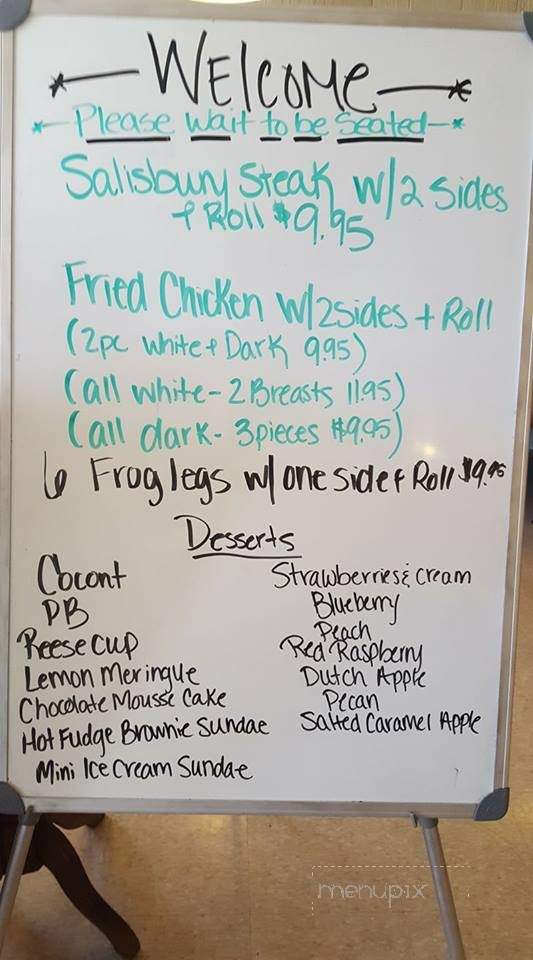 WELCOME
Please Wait to be Seated
Salisbury Steak w/2 Sides
+ Roll $9.95
Fried Chicken w/2sides + Roll
(2pc white + Dark 9.95)
(all white - 2 Breasts 11.95)
(all dark - 3 pieces $9.95)
6 Frog legs w/ one side + Roll $9.95
Desserts
Cocont
PB
Reese cup
Lemon Meringue
Chocolate Mousse Cake
Hot Fudge Brownie Sundae
Mini Ice Cream Sundae
Strawberries & cream
Blueberry
Peach
Red Raspberry
Dutch Apple
Pecan
Salted Caramel Apple
menupix